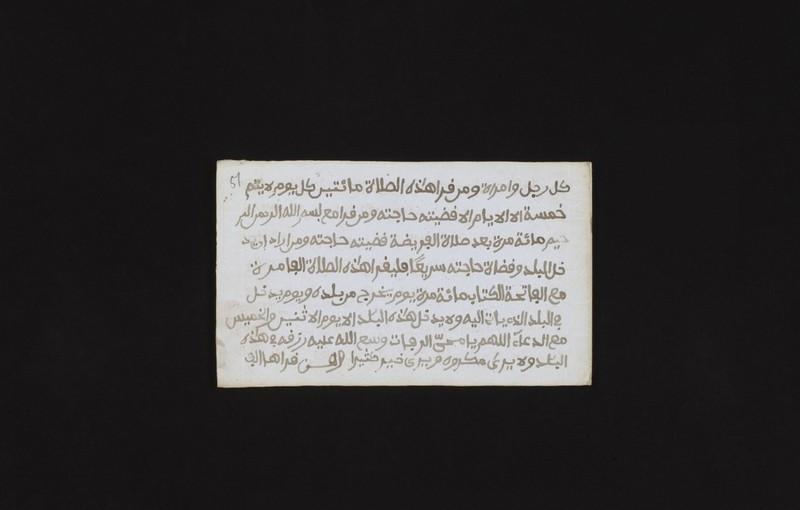 كل رجل وامراة ومن قراهذه الصلاة مائتين كل يوم لايتم
خمسة الا الايام الا قضيته حاجته ومن قرا مع بسم الله الرحمن الر
حيم مائة مرة بعد صلاة الفريضة قضيته حاجته ومن اراد
خل البلد وقضاة حاجته سريعًا فليقرا هذه الصلاة الف مرة
مع الفاتحة الكتاب مائة مرة يوم يخرج من بلده ويوم يدخل
في البلد اليه ولا يدخل هذه البلد الا يوم الاثنين والخميس
مع الدعاء اللهم يا الله عليه رزقه في هذه
البلد ولا يرى مكروه ويرى خير كثيرا قراهذا
51